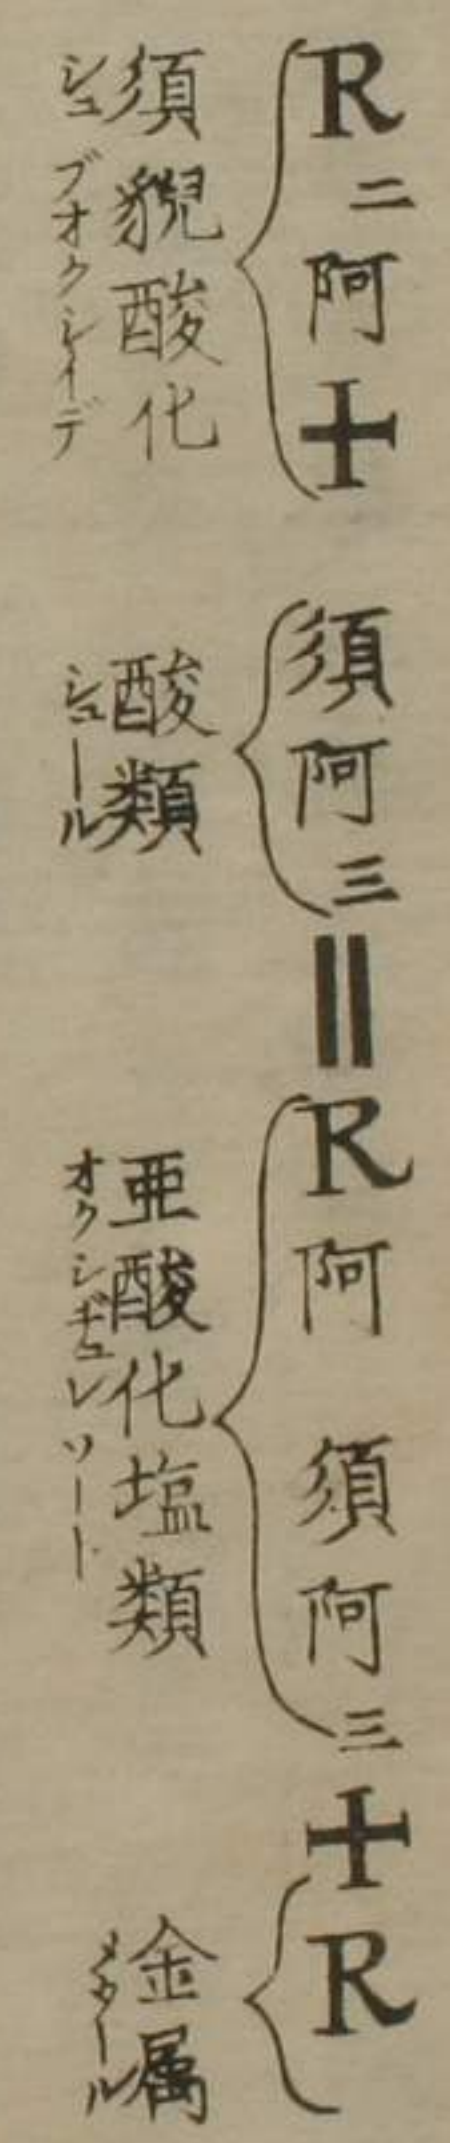 R二阿+須阿三=R阿 須阿三+R
須貎酸化
シュブオクシイデ
酸類
シュール
亜酸化塩類
オクシギュレソート
金属
メタール